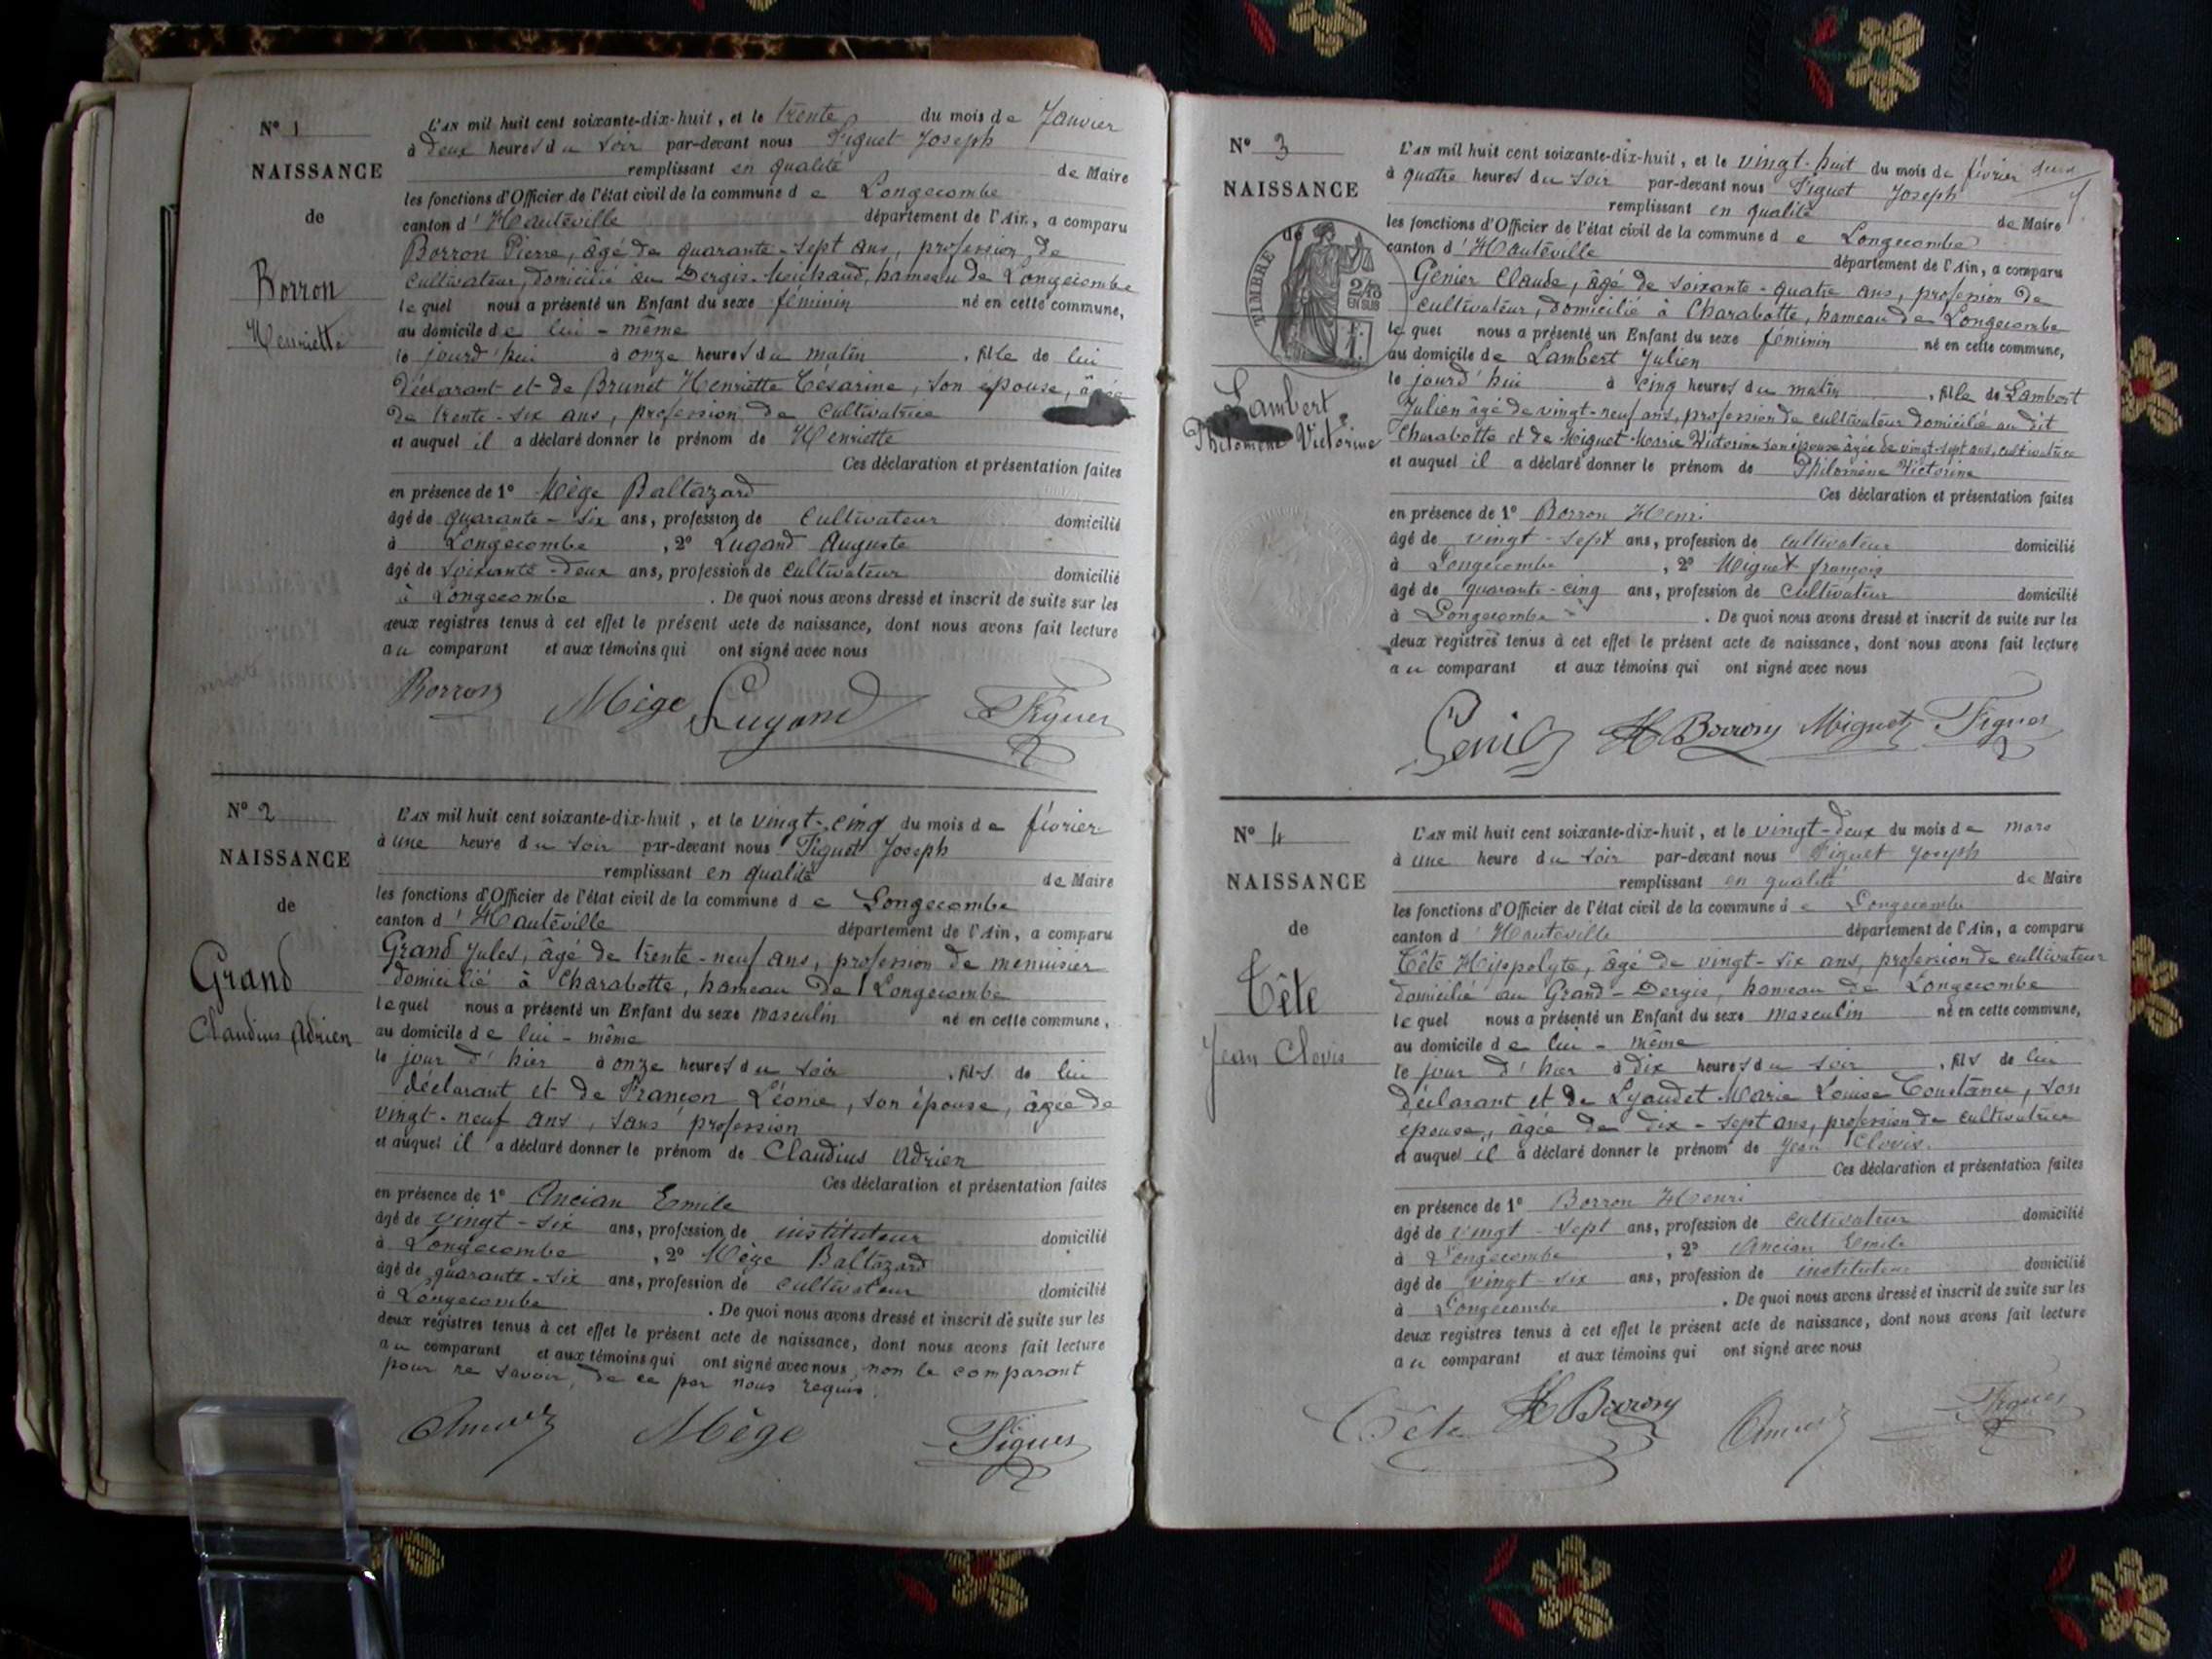 N° 1
NAISSANCE
de
Borron
Henriette
L'AN mil huit cent soixante-dix-huit, et le trente du mois de Janvier
à deux heures du soir par-devant nous Figuet Joseph
remplissant en qualité de Maire
les fonctions d'Officier de l'état civil de la commune de Longecombe
canton d'Hauteville département de l'Ain, a comparu
Borron Pierre, âgé de quarante-sept ans, profession de
cultivateur, domicilié au Dergis- hameau de Longecombe
lequel nous a présenté un Enfant du sexe féminin né en cette commune,
au domicile de lui-même
le jourd'hui à onze heures du matin, fille de lui
déclarant et de Brunet Henriette Césarine, son épouse, âgée
de trente-six ans, profession de cultivatrice
et auquel il a déclaré donner le prénom de Henriette
Ces déclaration et présentation faites
en présence de 1° Mège Baltazard
âgé de quarante-six ans, profession de cultivateur domicilié
à Longecombe, 2° Lugand Auguste
âgé de soixante-deux ans, profession de cultivateur domicilié
à Longecombe. De quoi nous avons dressé et inscrit de suite sur les
deux registres tenus à cet effet le présent acte de naissance, dont nous avons fait lecture
au comparant et aux témoins qui ont signé avec nous
Borron Mège Lugand Figuet
N° 2
NAISSANCE
de
Grand
Claudius Adrien
L'AN mil huit cent soixante-dix-huit, et le vingt-cinq du mois de février
à une heure du soir par-devant nous Figuet Joseph
remplissant en qualité de Maire
les fonctions d'Officier de l'état civil de la commune de Longecombe
canton d'Hauteville département de l'Ain, a comparu
Grand Jules, âgé de trente-neuf ans, profession de menuisier
domicilié à Charabotte, hameau de Longecombe
lequel nous a présenté un Enfant du sexe masculin né en cette commune,
au domicile de lui-même
le jour d'hier à onze heures du soir, fils de lui
déclarant et de Françon Léonie, son épouse, âgée de
vingt-neuf ans, sans profession
et auquel il a déclaré donner le prénom de Claudius Adrien
Ces déclaration et présentation faites
en présence de 1° Ancian Emile
âgé de vingt-six ans, profession de instituteur domicilié
à Longecombe, 2° Mège Baltazard
âgé de quarante-six ans, profession de cultivateur domicilié
à Longecombe. De quoi nous avons dressé et inscrit de suite sur les
deux registres tenus à cet effet le présent acte de naissance, dont nous avons fait lecture
au comparant et aux témoins qui ont signé avec nous, non le comparant
pour ne savoir, de ce par nous requis.
Ancian Mège Figuet
N° 3
NAISSANCE
de
TIMBRE
2/10
EN SUS
Lambert
Philomène Victorine
L'AN mil huit cent soixante-dix-huit, et le vingt-huit du mois de février deux
à quatre heures du soir par-devant nous Figuet Joseph
remplissant en qualité de Maire
les fonctions d'Officier de l'état civil de la commune de Longecombe
canton d'Hauteville département de l'Ain, a comparu
Génier Claude, âgé de soixante-quatre ans, profession de
cultivateur, domicilié à Charabotte, hameau de Longecombe
lequel nous a présenté un Enfant du sexe féminin né en cette commune,
au domicile de Lambert Julien
le jourd'hui à cinq heures du matin, fille de Lambert
Julien âgé de vingt-neuf ans, profession de cultivateur domicilié au dit
Charabotte et de Miguet Marie Victorine son épouse âgée de vingt-sept ans, cultivatrice
et auquel il a déclaré donner le prénom de Philomène Victorine
Ces déclaration et présentation faites
en présence de 1° Borron Henri
âgé de vingt-sept ans, profession de cultivateur domicilié
à Longecombe, 2° Miguet françois
âgé de quarante-cinq ans, profession de cultivateur domicilié
à Longecombe. De quoi nous avons dressé et inscrit de suite sur les
deux registres tenus à cet effet le présent acte de naissance, dont nous avons fait lecture
au comparant et aux témoins qui ont signé avec nous
H Borron Miguet Figuet
N° 4
NAISSANCE
de
Tête
Jean Clovis
L'AN mil huit cent soixante-dix-huit, et le vingt-deux du mois de mars
à une heure du soir par-devant nous Figuet Joseph
remplissant en qualité de Maire
les fonctions d'Officier de l'état civil de la commune de Longecombe
canton d'Hauteville département de l'Ain, a comparu
Tête Hippolyte, âgé de vingt-six ans, profession de cultivateur
domicilié au Grand-Dergis, hameau de Longecombe
lequel nous a présenté un Enfant du sexe masculin né en cette commune,
au domicile de lui-même
le jour d'hier à dix heures du soir, fils de lui
déclarant et de Lyaudet Marie Louise Constance, son
épouse, âgée de dix-sept ans, profession de cultivatrice
et auquel il a déclaré donner le prénom de Jean Clovis.
Ces déclaration et présentation faites
en présence de 1° Borron Henri
âgé de vingt-sept ans, profession de cultivateur domicilié
à Longecombe, 2° Ancian Emile
âgé de vingt-six ans, profession de instituteur domicilié
à Longecombe. De quoi nous avons dressé et inscrit de suite sur les
deux registres tenus à cet effet le présent acte de naissance, dont nous avons fait lecture
au comparant et aux témoins qui ont signé avec nous
Tête H Borron Ancian Figuet